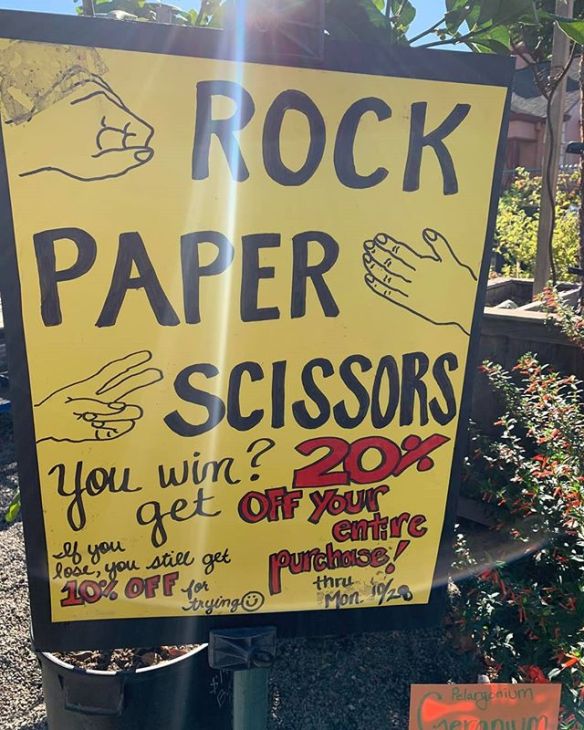 ROCK
PAPER
SCISSORS
You win? 20%
get OFF Your
entire
purchase!
If you
lose, you still get
10% OFF for
trying
thru
Mon. 10/28
Pelargonium
Geranium